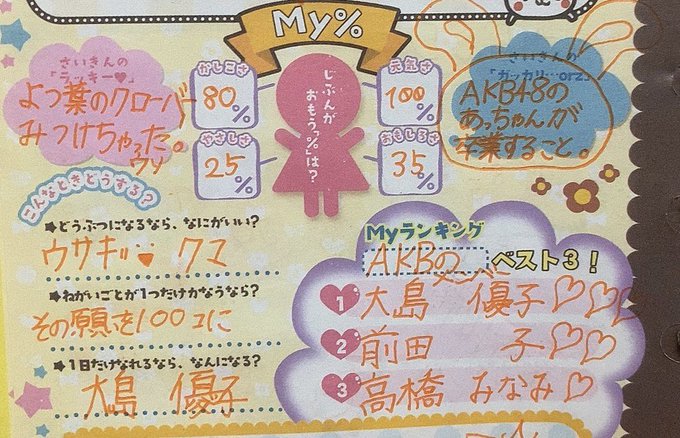 My%
さいきんの
「ラッキー♥」
よつ葉のクローバー
みつけちゃった。
ウソ
かしこさ
80%
元気さ
100%
やさしさ
25%
おもしろさ
35%
じぶんが
おもう「%」は?
さいきんの
「ガッカリ…orz」
AKB48の
あっちゃんが
卒業すること。
こんなときどうする?
★どうぶつになるなら、なにがいい?
ウサギッ クマ
★ねがいごとが1つだけかなうなら?
その願を100コに
★1日だけなれるなら、なんになる?
大島 優子
Myランキング
AKBの ベスト3!
1 大島 優子♡♡♡
2 前田 子♡♡
3 高橋 みなみ♡